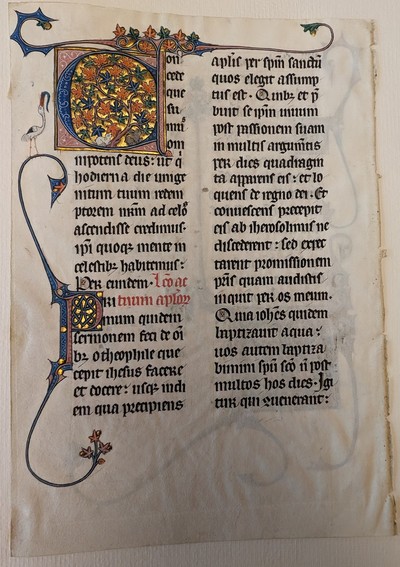 Con
cede
que
su
mus
om
nipotens deus: ut q
hodierna die unige
nitum tuum redem
ptorem nrm ad celos
ascendisse credimus.
ipi quoqz mente in
celestibz habitemus:
Per eundem. Lco ac
Pri tuum aplor
mum quidem
sermonem feci de oi
bz o theophile que
cepit ihesus facere
et docere: usqz in di
em qua precipiens
aplis per spm sanctu
quos elegit assump
tus est. Quibz et p
buit se ipm uiuum
post passionem suam
in multis argumtis
per dies quadragin
ta apparens eis: et lo
quens de regno dei. Et
conuescens precepit
eis ab iherosolimis ne
discederent: sed expec
tarent promissionem
pris quam audistis
inquit per os meum.
Quia iohes quidem
baptizauit aqua:
uos autem baptiza
bimini spu sco n post
multos hos dies. Igi
tur qui quenerant: